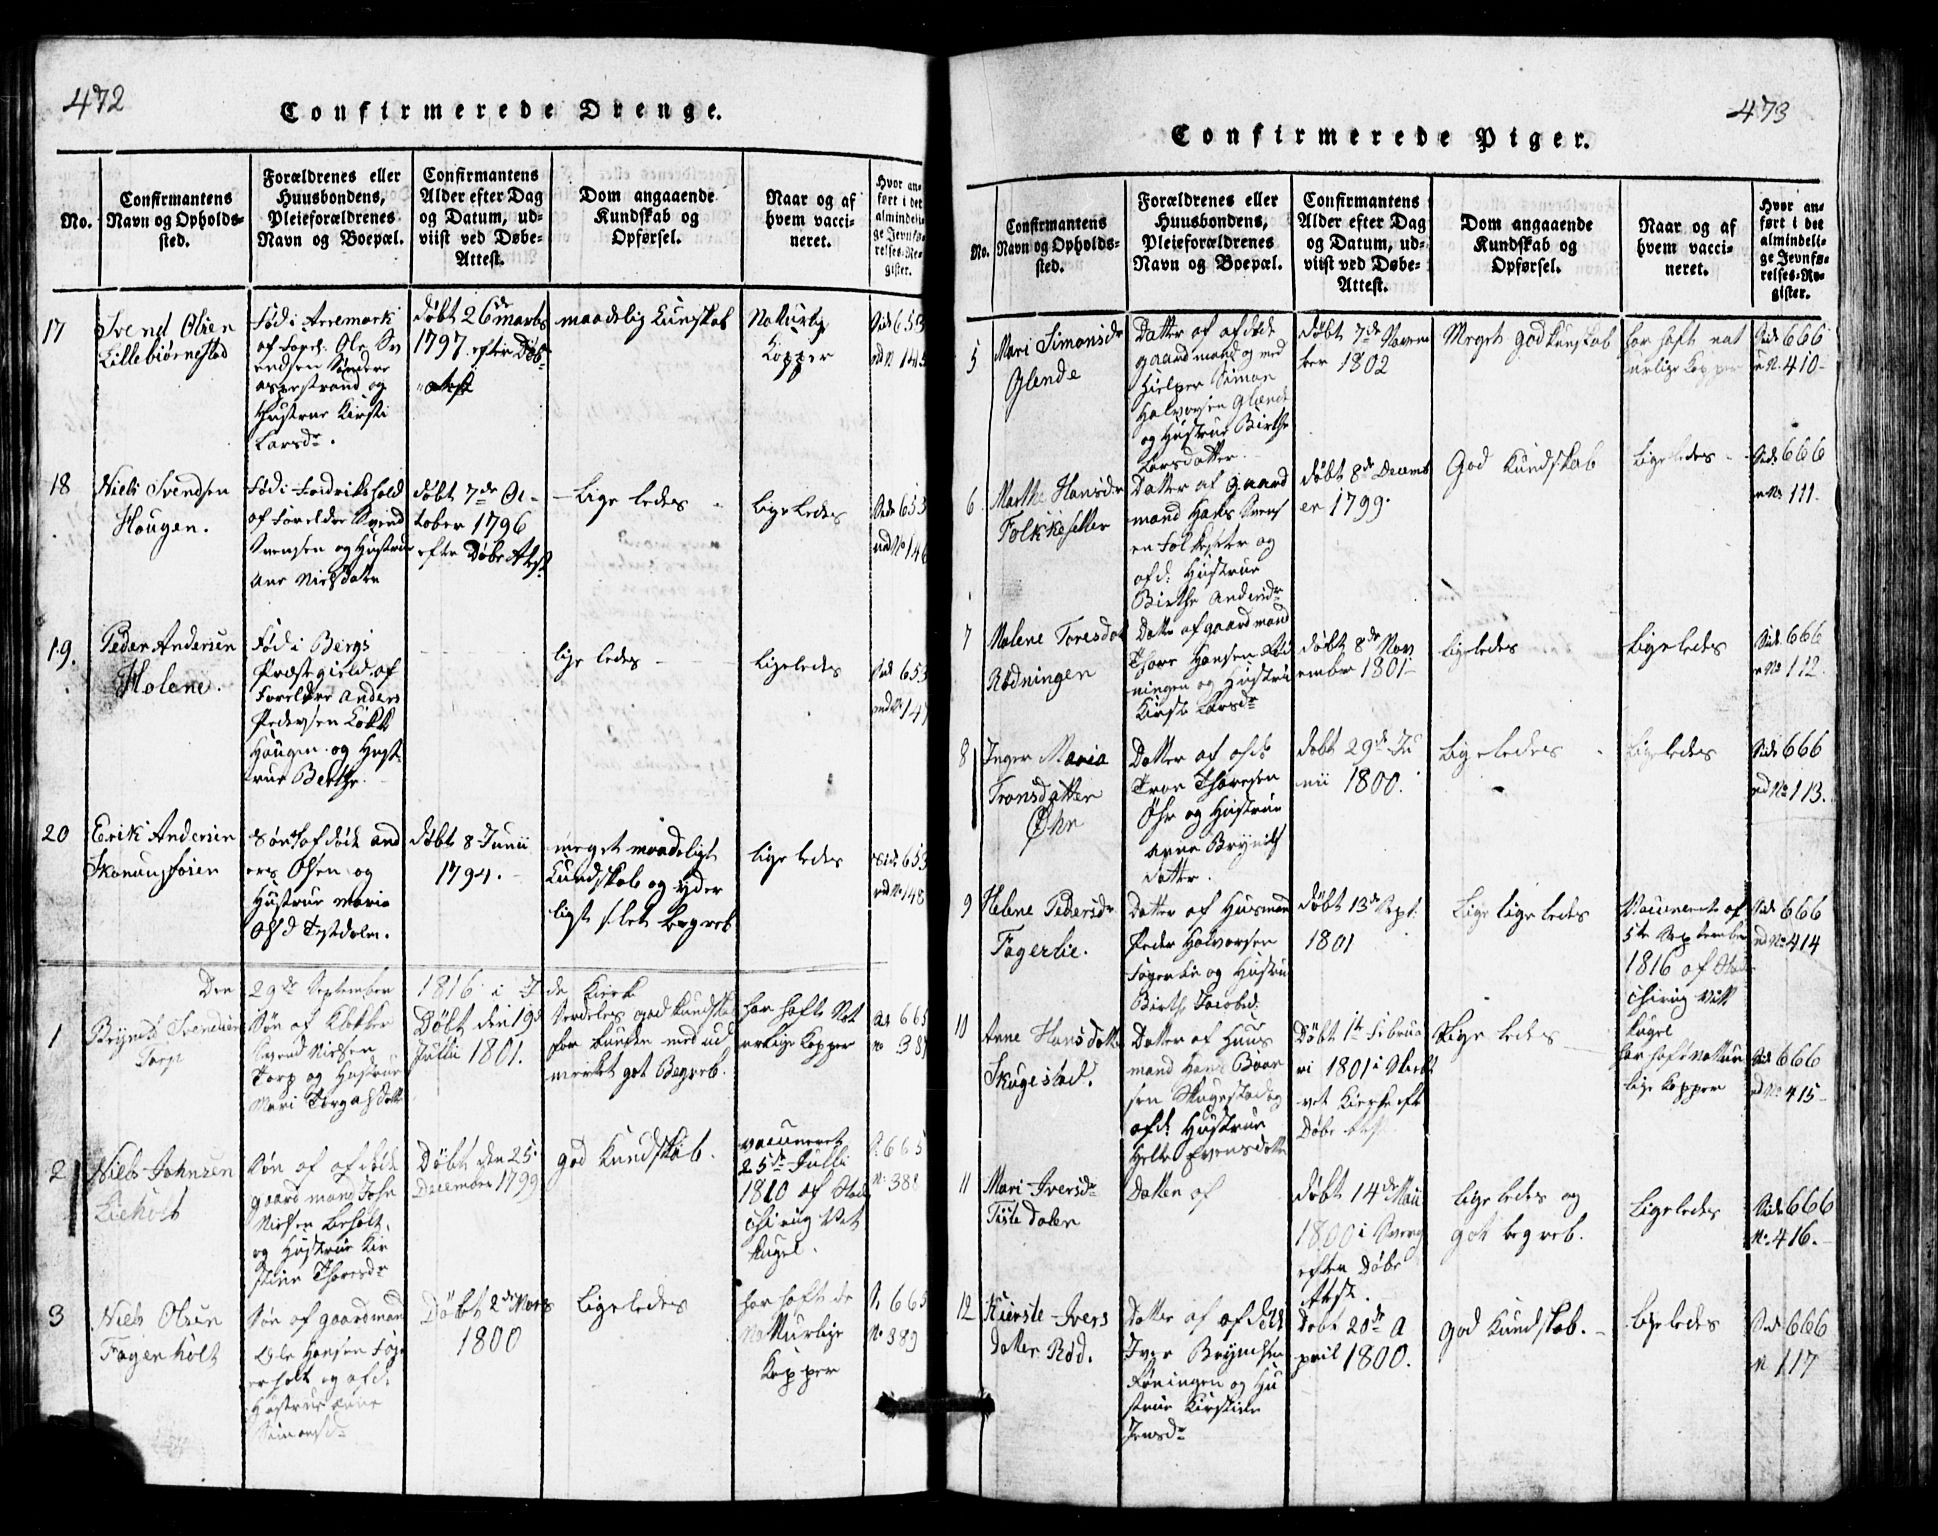 472
Confirmerede Drenge.
No.
Confirmantens
Navn og Opholds-
sted.
Forældrenes eller
Huusbondens,
Pleieforældrenes
Navn og Boepæl.
Confirmantens
Alder efter Dag
og Datum, ud-
viist ved Døbe-
Attest.
Dom angaaende
Kundskab og
Opførsel.
Naar og af
hvem vacci-
neret.
Hvor an-
ført i det
almindeli-
ge Jevnfø-
relses-Re-
gister.
17
Svend Olsen
Lillebiørnestad
Fød i Arremark
af Foræl: Ole Sv
endsen Søndre
aspestrand og
Hustrue Kirsti
Larsdr.
døbt 26de marts
1797 efter Døb-
maadelig Kunskab
Natturlig
Kopper
Side 653
18
Niels Svendsen
Haugen.
Fød i Fredrikshald
af Foreldre Svend
Svensen og Hustrue
Ane Nielsdatter
døbt 7de Oc-
tober 1796
efter Døbe Attest
Lige ledes
ligeledes
Side 653
und No 146
19.
Peder Andersen
Holene.
Fød i Bergs
Præstegield af
Foreldre Anders
Pedersen
Haugen og Hust
rue Berthe
lige ledes
ligeledes
Side 653
und No 147
20
Erik Andersen
Søn af afdøde And
ers Olsen og
Hustrue Maria
døbt 8 Junii
1794.
meget maadeligt
Kundskab og yder
ligst slet begreb
lige ledes
Side 653
und No 148
Den 29de September 1816 i de Kirke
1
Brynild Svendsen
Torp
Søn af Klokker
Svend Nielsen
Torp og Hustrue
Mari
Døbt den 19de
Julii 1801.
Serdeles god Kundskab
med ud
merket got Begreb.
har hafte Nat
urlige Kopper
665
2
Niels Johnsen
Lieholt
Søn af afdøde
gaardmand John
Nielsen Lieholt
og Hustrue Kir
stine Thoresdr
Døbt den 25
December 1799
god Kundskab.
vaccineret
25de Julli
1810 af
chirug Vet
Kugel.
S. 665
No 388
3
Niels Olsen
Fagerholt
Søn af gaardmand
Ole Hansen Fag
erholt og afd:
Hustrue Anne
Simonsdr
Døbt 2de Marts
1800
Ligeledes
har haft de
Natturlige
Kopper
S. 665
No 389
473
Confirmerede Piger.
No.
Confirmantens
Navn og Opholds-
sted.
Forældrenes eller
Huusbondens,
Pleieforældrenes
Navn og Boepæl.
Confirmantens
Alder efter Dag
og Datum, ud-
viist ved Døbe-
Attest.
Dom angaaende
Kundskab og
Opførsel.
Naar og af
hvem vacci-
neret.
Hvor an-
ført i det
almindeli-
ge Jevnfø-
relses-Re-
gister.
5
Mari Simonsdr
Glende
Datter af afdøde
gaardmand og med
hielper Simon
Halvorsen Glende
og Hustrue Birthe
Larsdatter.
døbt 7de Novem
ber 1802
Meget god Kunskab
har haft nat
urlige Kopper
Side 666
No. 410
6
Marthe Hansdr
Folkkesetter
Datter af Gaard
mand Hans Svens
en Folkesetter og
afd: Hustrue
Birthe Andersdr
døbt 8de Decemb
er 1799.
God Kundskab
ligeledes
Side 666
No 111
7
Malene Toresdat
Rødningen
Datter af gaardmand
Thore Hansen Rød
ningen og Hustru
Kirste Larsdr
døbt 8de Nov
ember 1801
ligeledes
ligeledes
Side 666
No 112
8
Inger Maria
Tronsdatter
Øhr
Datter af afd:
Tron Thoresen
Øhr og Hustrue
Anne Brynilds
datter.
døbt 29de Ju
nii 1800.
Ligeledes
ligeledes
Side 666
und No 113.
9
Helene Pedersdr
Fagerlie.
Datter af Husmand
Peder Halvorsen
Fagerlie og Hustrue
Birthe Jacobsd:
døbt 13de Sept:
1801
Lige lige ledes
Vaccineret af
5te September
1816 af
chirug Vitt
Kugel
Side 666
und No 414
10
Anne Hansdatt.
Skugestad.
Datter af Huus
mand Hans Boar
sen Skugestad og
afd: Hustrue
Helle Evensdatter
Døbt 1te Februa
ri 1801 i
Kierke eft
Døbe Attest
Lige ledes
har haft Nattur
lige Kopper
Side 666
und No 415
11
Mari Iversdr
Tistedalen
Datter af
døbt 14de Maii
1800 i
efter Døbe
Attest.
ligeledes og
got begreb.
Ligeledes
Side 666
No. 416.
12
Kierste Ivers
datter Rød.
Datter af afdøde
Iver Brynildsen
Røningen og Hu
strue Kirstine
Jensdr
Døbt 20de A
pril 1800.
God Kundskab.
ligeledes
Side 666
N 117